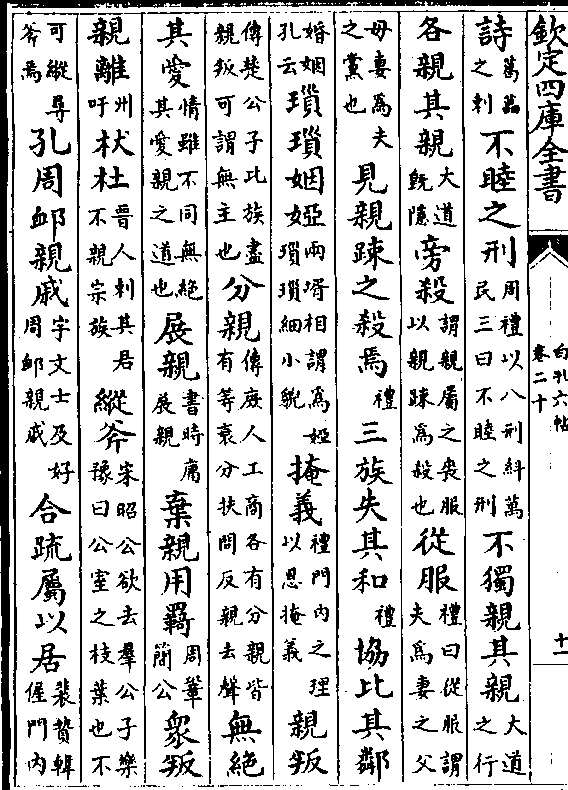 欽定四庫全書
白孔六帖
卷二十
十一
詩葛藟之刺不睦之刑周禮以八刑糾萬民三曰不睦之刑不獨親其親大道之行
各親其親大道既隱旁殺謂親屬之喪服以親疎為殺也從服禮曰從服謂夫為妻之父
母妻為夫之黨也見親疎之殺焉禮三族失其和禮協比其鄰
婚姻孔云瑣瑣姻婭兩壻相謂為婭瑣瑣細小貌掩義禮門內之理以恩掩義親叛
傳楚公子比族盡親叛可謂無主也分親傳庶人工商各有分親皆有等衰分扶問反親去聲無絕
其愛情雖不同無絕其愛親之道也展親書時庸展親棄親用羈周鞏簡公衆叛
親離州吁杕杜晉人刺其君不親宗族縱斧宋昭公欲去羣公子樂豫曰公室之枝葉也不
可縱尋斧焉孔周卹親戚宇文士及好周卹親戚合疏屬以居裴贄輯偓門內